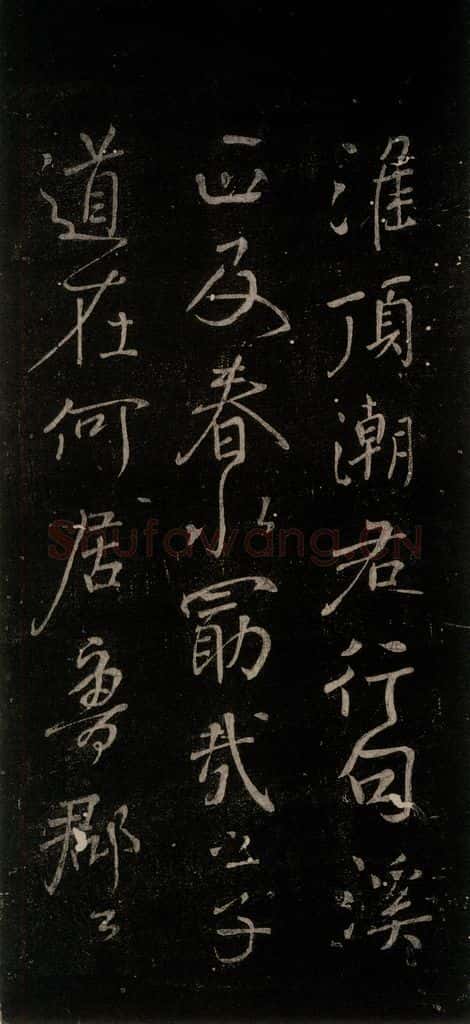 淮頂潮君行句溪
正及春水勖哉之子
道在何居魯郡公
Shufawang.CN